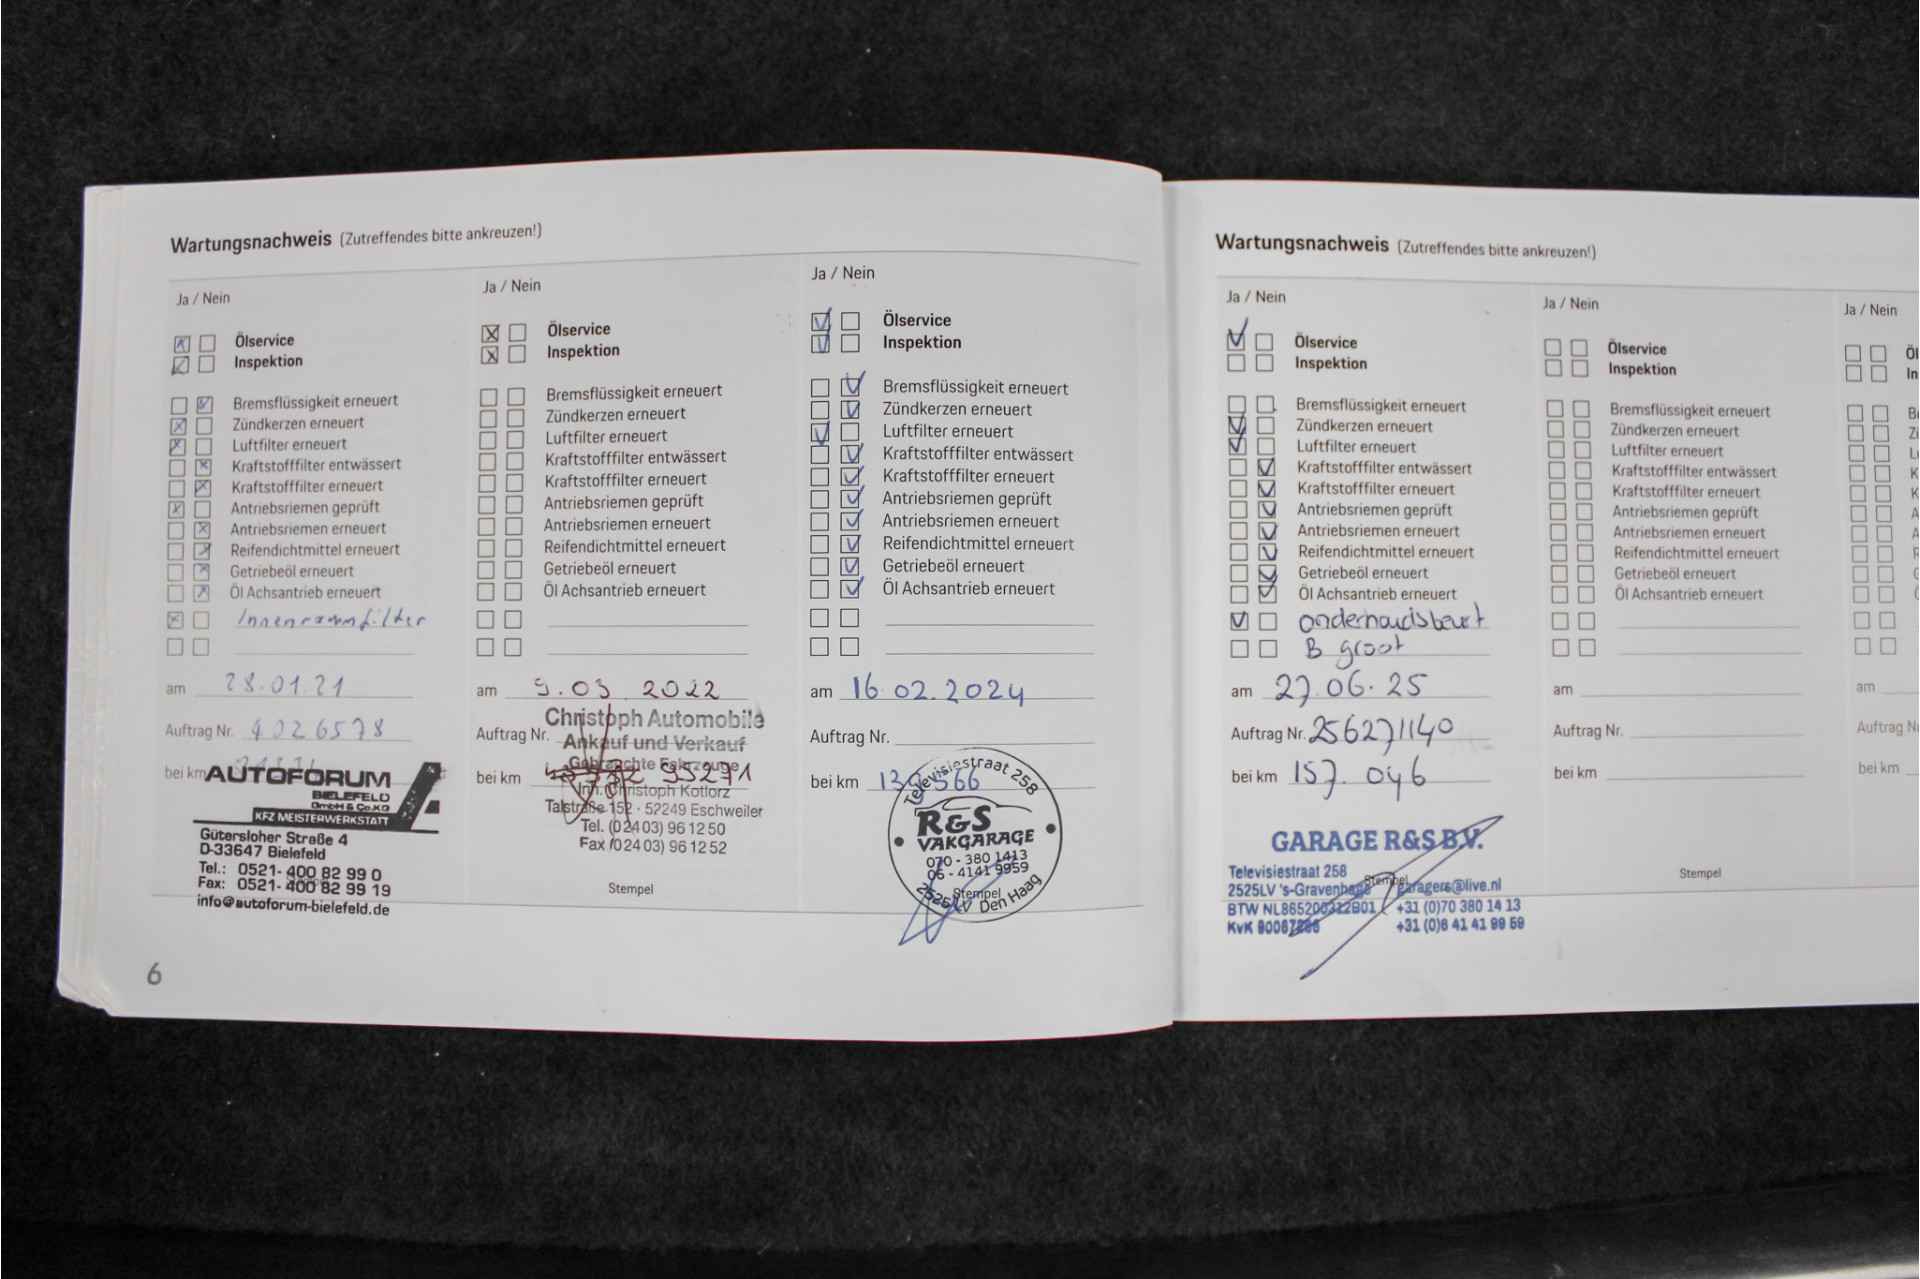 Wartungsnachweis (Zutreffendes bitte ankreuzen!)
Ja / Nein
Ölservice
Inspektion
Bremsflüssigkeit erneuert
Zündkerzen erneuert
Luftfilter erneuert
Kraftstofffilter entwässert
Kraftstofffilter erneuert
Antriebsriemen geprüft
Antriebsriemen erneuert
Reifendichtmittel erneuert
Getriebeöl erneuert
Öl Achsantrieb erneuert
Innenraumfilter
am 28.01.21
Auftrag Nr. 4026578
bei km
AUTOFORUM
BIELEFELD
GmbH & Co.KG
KFZ MEISTERWERKSTATT
Gütersloher Straße 4
D-33647 Bielefeld
Tel.: 0521-400 82 99 0
Fax: 0521-400 82 99 19
info@autoforum-bielefeld.de
6
Ja / Nein
Ölservice
Inspektion
Bremsflüssigkeit erneuert
Zündkerzen erneuert
Luftfilter erneuert
Kraftstofffilter entwässert
Kraftstofffilter erneuert
Antriebsriemen geprüft
Antriebsriemen erneuert
Reifendichtmittel erneuert
Getriebeöl erneuert
Öl Achsantrieb erneuert
am 9.03.2022
Auftrag Nr.
bei km 95271
Christoph Automobile
Ankauf und Verkauf
Gebrauchte Fahrzeuge
Inh. Christoph Kotlorz
Talstraße 152 · 52249 Eschweiler
Tel. (02403) 961250
Fax (02403) 961252
Stempel
Ja / Nein
Ölservice
Inspektion
Bremsflüssigkeit erneuert
Zündkerzen erneuert
Luftfilter erneuert
Kraftstofffilter entwässert
Kraftstofffilter erneuert
Antriebsriemen geprüft
Antriebsriemen erneuert
Reifendichtmittel erneuert
Getriebeöl erneuert
Öl Achsantrieb erneuert
am 16.02.2024
Auftrag Nr.
bei km
Televisiestraat 258
R&S
VAKGARAGE
070 - 380 1413
06 - 4141 9959
Stempel
2525LV Den Haag
Wartungsnachweis (Zutreffendes bitte ankreuzen!)
Ja / Nein
Ölservice
Inspektion
Bremsflüssigkeit erneuert
Zündkerzen erneuert
Luftfilter erneuert
Kraftstofffilter entwässert
Kraftstofffilter erneuert
Antriebsriemen geprüft
Antriebsriemen erneuert
Reifendichtmittel erneuert
Getriebeöl erneuert
Öl Achsantrieb erneuert
onderhoudsbeurt
B groot
am 27.06.25
Auftrag Nr. 256271140
bei km 157.046
GARAGE R&S B.V.
Televisiestraat 258
Stempel
2525LV 's-Gravenhage garagers@live.nl
BTW NL865200312B01 +31 (0)70 380 14 13
KvK +31 (0)6 41 41 99 59
Ja / Nein
Ölservice
Inspektion
Bremsflüssigkeit erneuert
Zündkerzen erneuert
Luftfilter erneuert
Kraftstofffilter entwässert
Kraftstofffilter erneuert
Antriebsriemen geprüft
Antriebsriemen erneuert
Reifendichtmittel erneuert
Getriebeöl erneuert
Öl Achsantrieb erneuert
am
Auftrag Nr.
bei km
Stempel
Ja / Nein
am
Auftrag
bei km